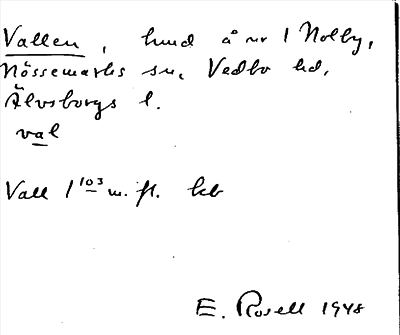 Vallen, lund å nr 1 Nolby,
Nössemarks sn, Vedbo hd,
Älvsborgs l.
val
Vall 1 103 m. fl. kb
E. Rosell 1948